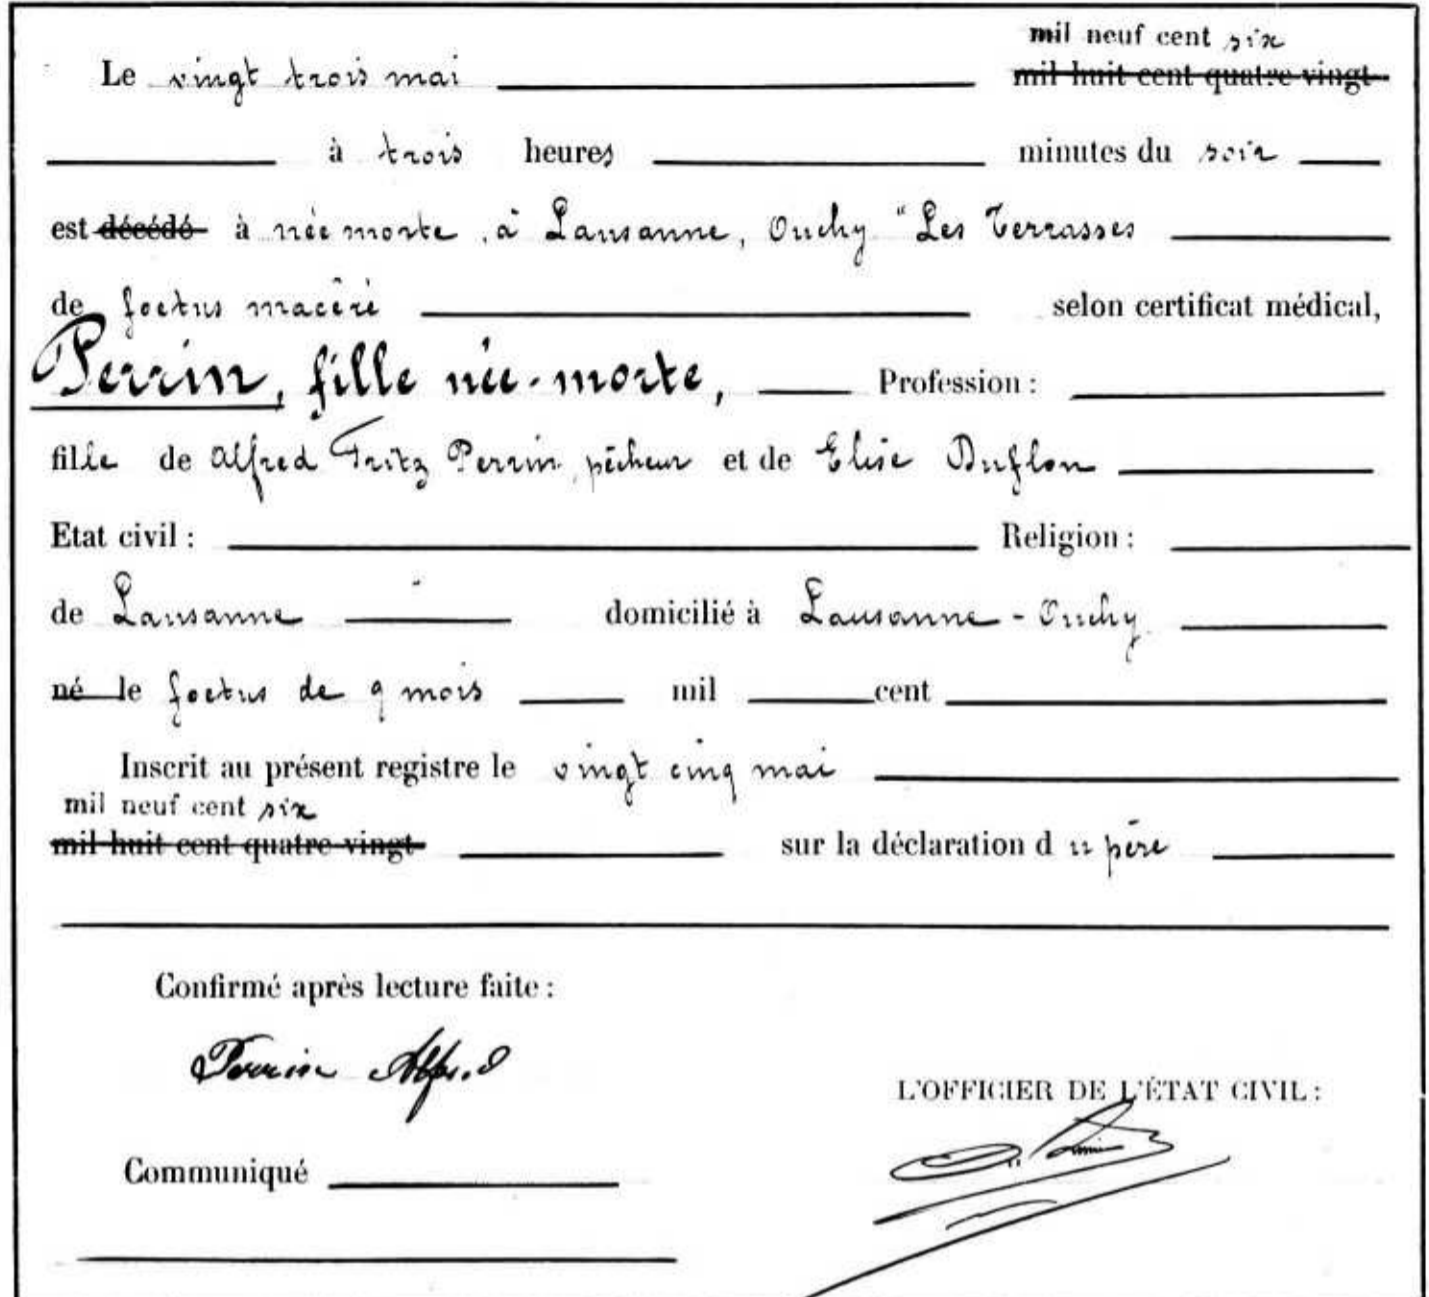 mil neuf cent six
Le vingt trois mai mil huit cent quatre-vingt
à trois heures minutes du soir
est décédé à née morte, à Lausanne, Ouchy "Les Terrasses
de foetus macéré selon certificat médical,
Perrin, fille née-morte, Profession :
fille de Alfred Fritz Perrin, pêcheur et de Elise Duflon
Etat civil : Religion :
de Lausanne domicilié à Lausanne - Ouchy
né le foetus de 9 mois mil cent
Inscrit au présent registre le vingt cinq mai
mil neuf cent six
mil huit cent quatre-vingt sur la déclaration du père
Confirmé après lecture faite :
Perrin Alfred
L'OFFICIER DE L'ÉTAT CIVIL :
Communiqué